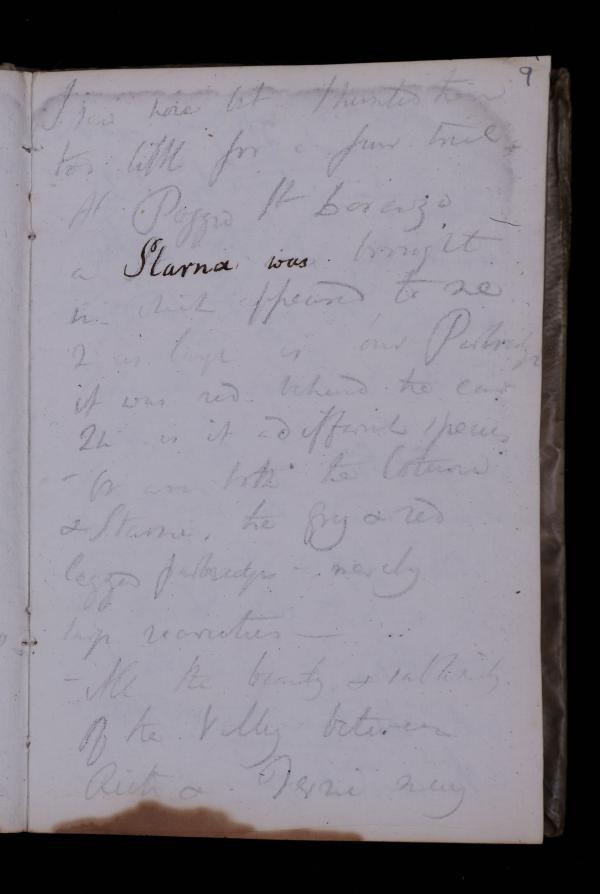 9
I saw here but I hunted him
too little for a fair trial +
At Poggio St Lorenzo
a Starna was brought
in which appeared to me
2 as large as our Partridge
it was red behind the ear
is it a different species
- Or are both the Coturni
& Starne, the grey & red
legged partridges - merely
large varieties —
- All the beauty & sublimity
of the Valley between
Rieti & Terni may